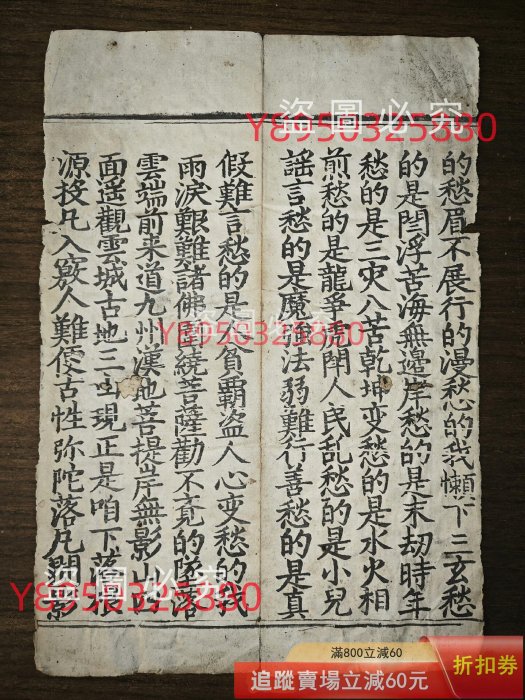 的愁眉不展行的漫愁的我懶下三玄愁
的是閆浮苦海無邊岸愁的是末刼時年
愁的是三灾八苦乾坤变愁的是水火相
煎愁的是龍爭虎閗人民乱愁的是小兒
謡言愁的是魔強法弱難行善愁的是真
假難言愁的是貧覇盗人心变愁的我
雨淚艱難諸佛圍繞菩薩勸不竟的隊落
雲端前来道九州漢地菩提岸無影山
面遥觀雲城古地三山現正是咱下落根
源投凡入竅人難侵古性弥陀落凡間影
盜圖必究
Y8950325830
盜圖必究
Y8950325830
盜圖必究
Y8950325830
滿800立減60
追蹤賣場立減60元
折扣券